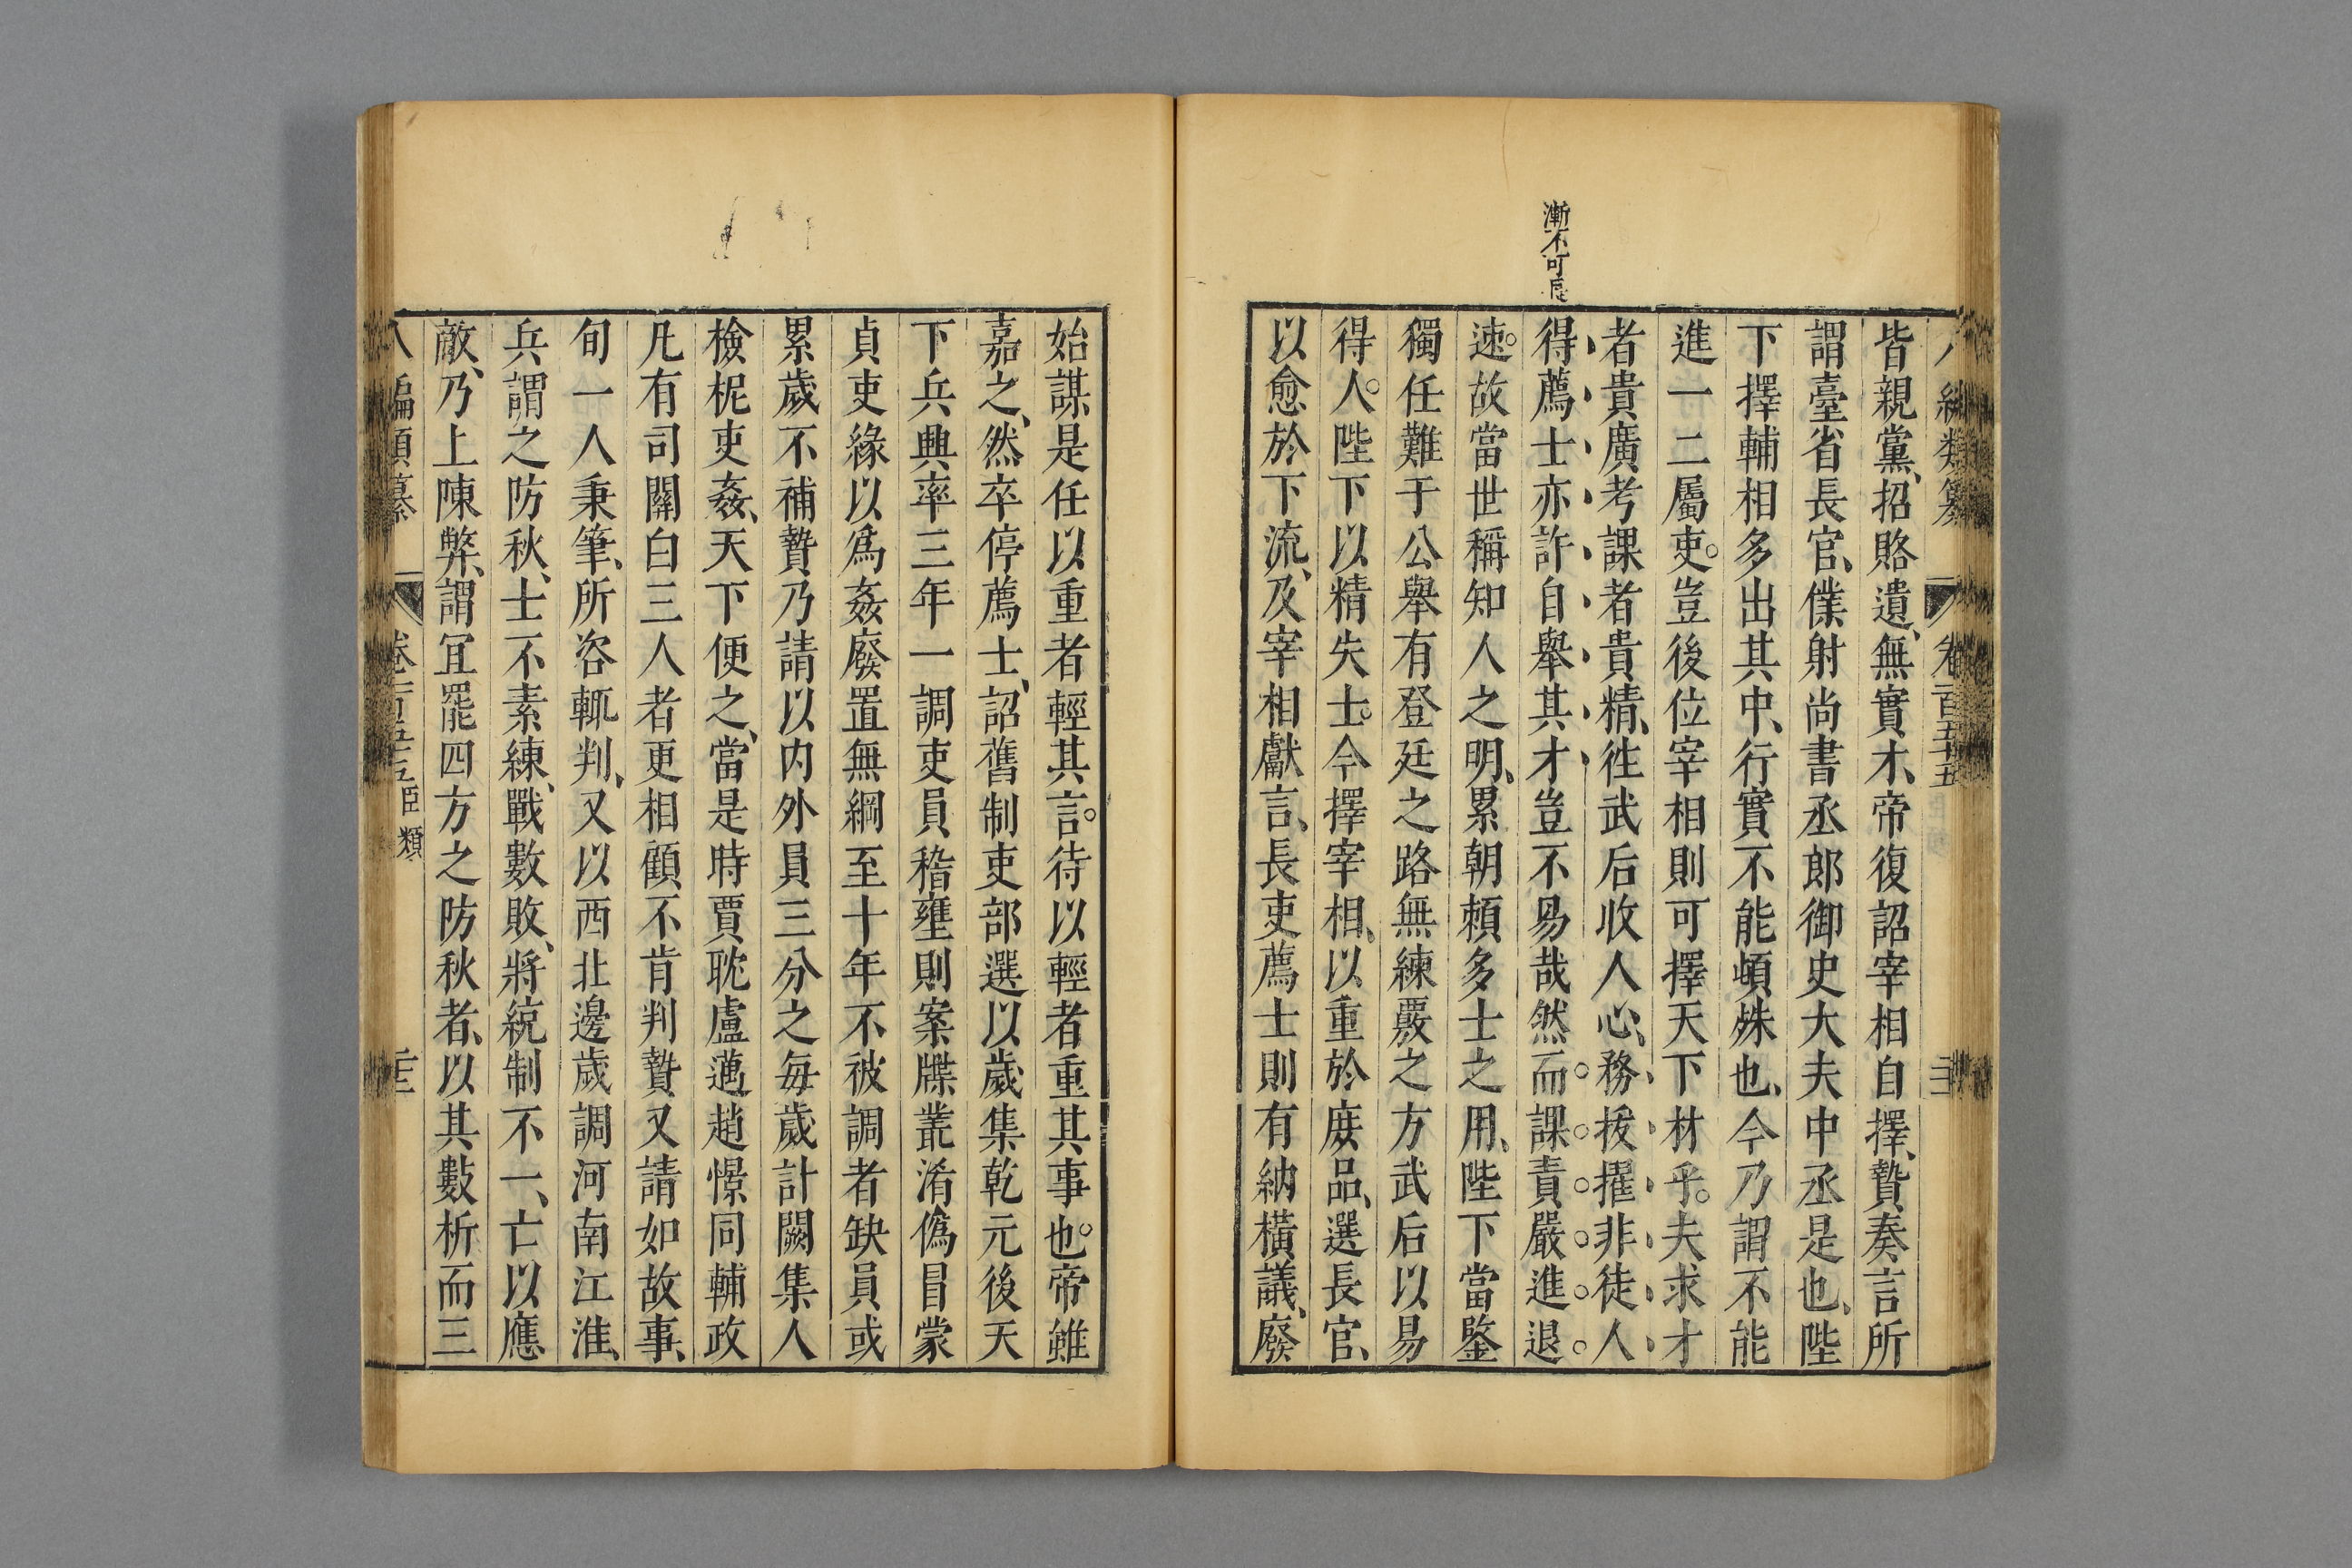 漸不可長
皆親黨、招賂遺、無實才、帝復詔宰相自擇、贄奏言所
謂臺省長官、僕射尚書丞郎御史大夫中丞是也、陛
下擇輔相多出其中、行實不能頓殊也、今乃謂不能
進一二屬吏。豈後位宰相則可擇天下材乎。夫求才
者貴廣考課者貴精、往武后收人心、務拔擢非徒人
得薦士亦許自舉其才豈不易哉然而課責嚴進退
速。故當世稱知人之明、累朝賴多士之用、陛下當鑒
獨任難于公舉有登廷之路無練覈之方武后以易
得人。陛下以精失士。今擇宰相、以重於庶品、選長官、
以愈於下流、及宰相獻言、長吏薦士則有納橫議、廢
始謀是任以重者輕其言。待以輕者重其事也。帝雖
嘉之、然卒停薦士、詔舊制吏部選以歲集乾元後天
下兵興率三年一調吏員稽壅則案牒叢淆偽冒蒙
貞吏緣以為姦廢置無綱至十年不被調者缺員或
累歲不補贄乃請以内外員三分之每歲計闕集人
檢柅吏姦、天下便之、當是時賈耽盧邁趙憬同輔政
凡有司關白三人者更相顧不肯判贄又請如故事、
旬一人秉筆、所咨輒判、又以西北邊歲調河南江淮、
兵謂之防秋、士不素練、戰數敗、將統制不一、亡以應
敵、乃上陳弊、謂宜罷四方之防秋者、以其數析而三
八編類纂
卷一百五十五
臣類